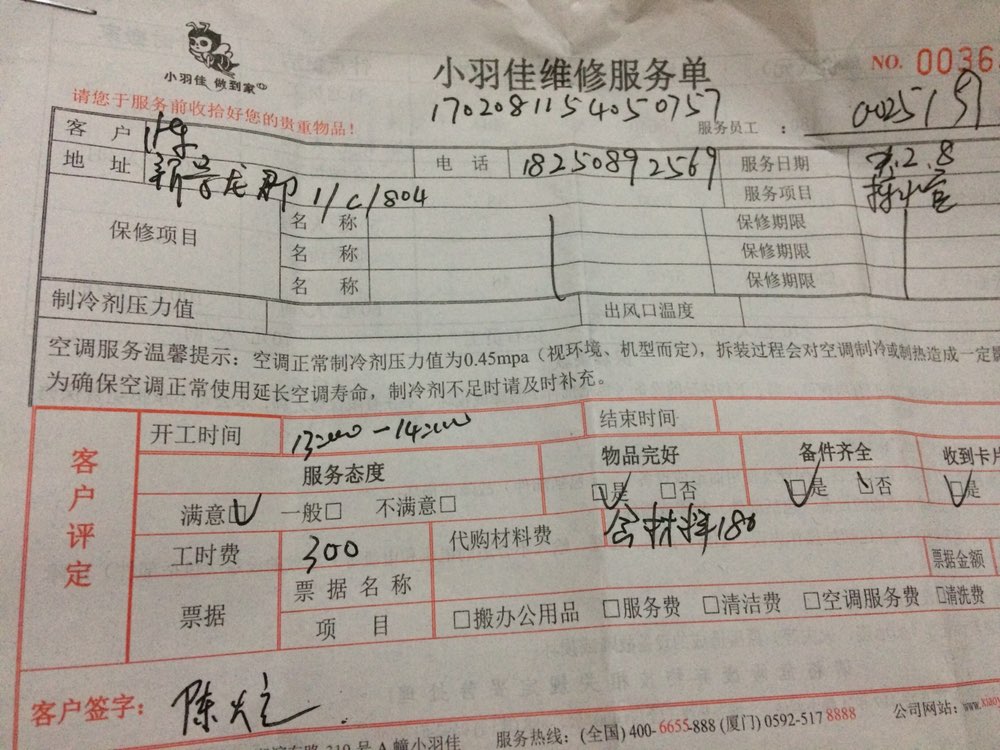 小羽佳 做到家
小羽佳维修服务单
NO. 0036
请您于服务前收拾好您的贵重物品！
1702081154050757
服务员工 ： 0025191
客 户 陈 电 话 18250892569 服务日期 2.8
地 址 新景龙郡 1/C/804 服务项目
保修项目 名 称 保修期限
名 称 保修期限
名 称 保修期限
制冷剂压力值 出风口温度
空调服务温馨提示：空调正常制冷剂压力值为0.45mpa（视环境、机型而定），拆装过程会对空调制冷或制热造成一定
为确保空调正常使用延长空调寿命，制冷剂不足时请及时补充。
客户评定
开工时间 13:00-14:00 结束时间
服务态度 物品完好 备件齐全 收到卡片
满意□ 一般□ 不满意□ □是 □否 □是 □否 □是
工时费 300 代购材料费 含材料180
票据 票据名称 票据金额
项 目 □搬办公用品 □服务费 □清洁费 □空调服务费 □清洗费
客户签字：陈
路 319 号 A 幢小羽佳 服务热线：(全国) 400-6655-888 (厦门) 0592-517 8888 公司网站：www.xiao